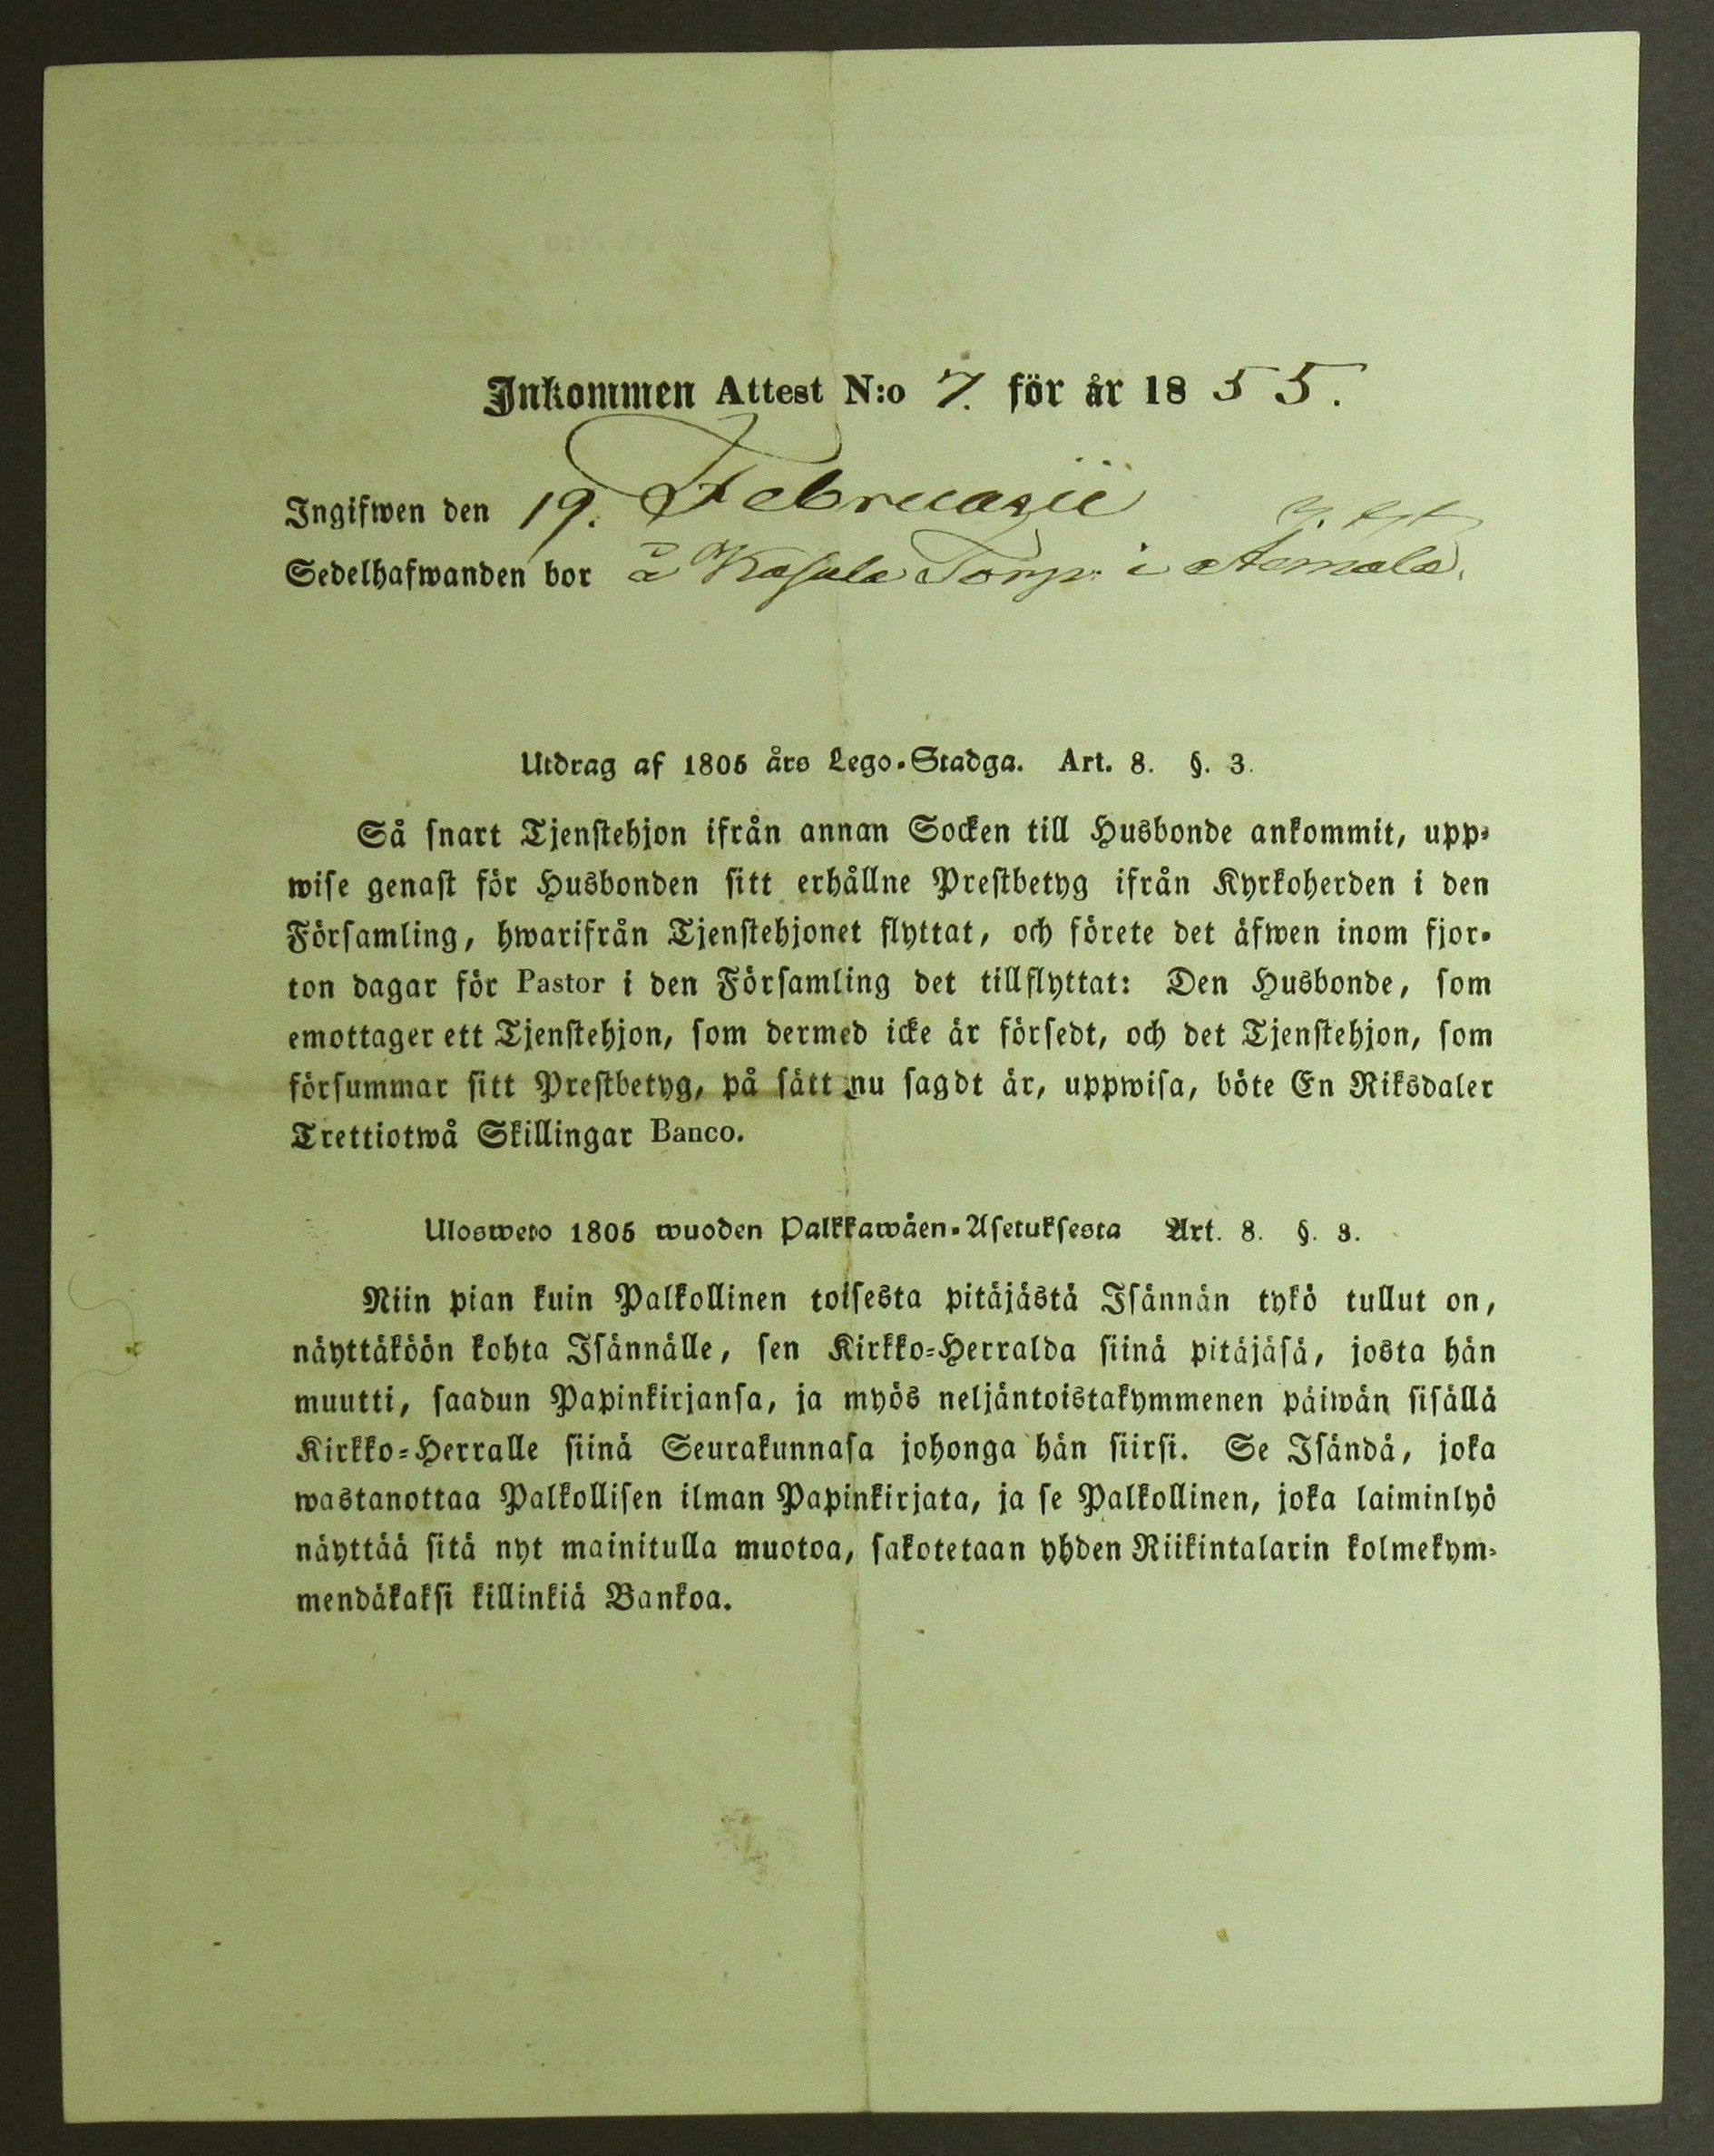 Inkommen Attest N:o 7. för år 1855.
Ingifwen den 19. Februarii
Sedelhafwanden bor å Kasula Torp i Aemälä.
Utdrag af 1805 års Lego-Stadga. Art. 8. §. 3.
Så snart Tjenstehjon ifrån annan Socken till Husbonde ankommit, upp-
wise genast för Husbonden sitt erhållne Prestbetyg ifrån Kyrkoherden i den
Församling, hwarifrån Tjenstehjonet flyttat, och förete det äfwen inom fjor-
ton dagar för Pastor i den Församling det tillflyttat: Den Husbonde, som
emottager ett Tjenstehjon, som dermed icke är försedt, och det Tjenstehjon, som
försummar sitt Prestbetyg, på sätt nu sagdt är, uppwisa, böte En Riksdaler
Trettiotwå Skillingar Banco.
Ulosweto 1805 wuoden Palkkawäen-Asetuksesta Art. 8. §. 3.
Niin pian kuin Palkollinen toisesta pitäjästä Isännän tykö tullut on,
näyttäköön kohta Isännälle, sen Kirkko-Herralda siinä pitäjäsä, josta hän
muutti, saadun Papinkirjansa, ja myös neljäntoistakymmenen päiwän sisällä
Kirkko-Herralle siinä Seurakunnasa johonga hän siirsi. Se Isändä, joka
wastanottaa Palkollisen ilman Papinkirjata, ja se Palkollinen, joka laiminlyö
näyttää sitä nyt mainitulla muotoa, sakotetaan yhden Riikintalarin kolmekym-
mendäkaksi killinkiä Bankoa.